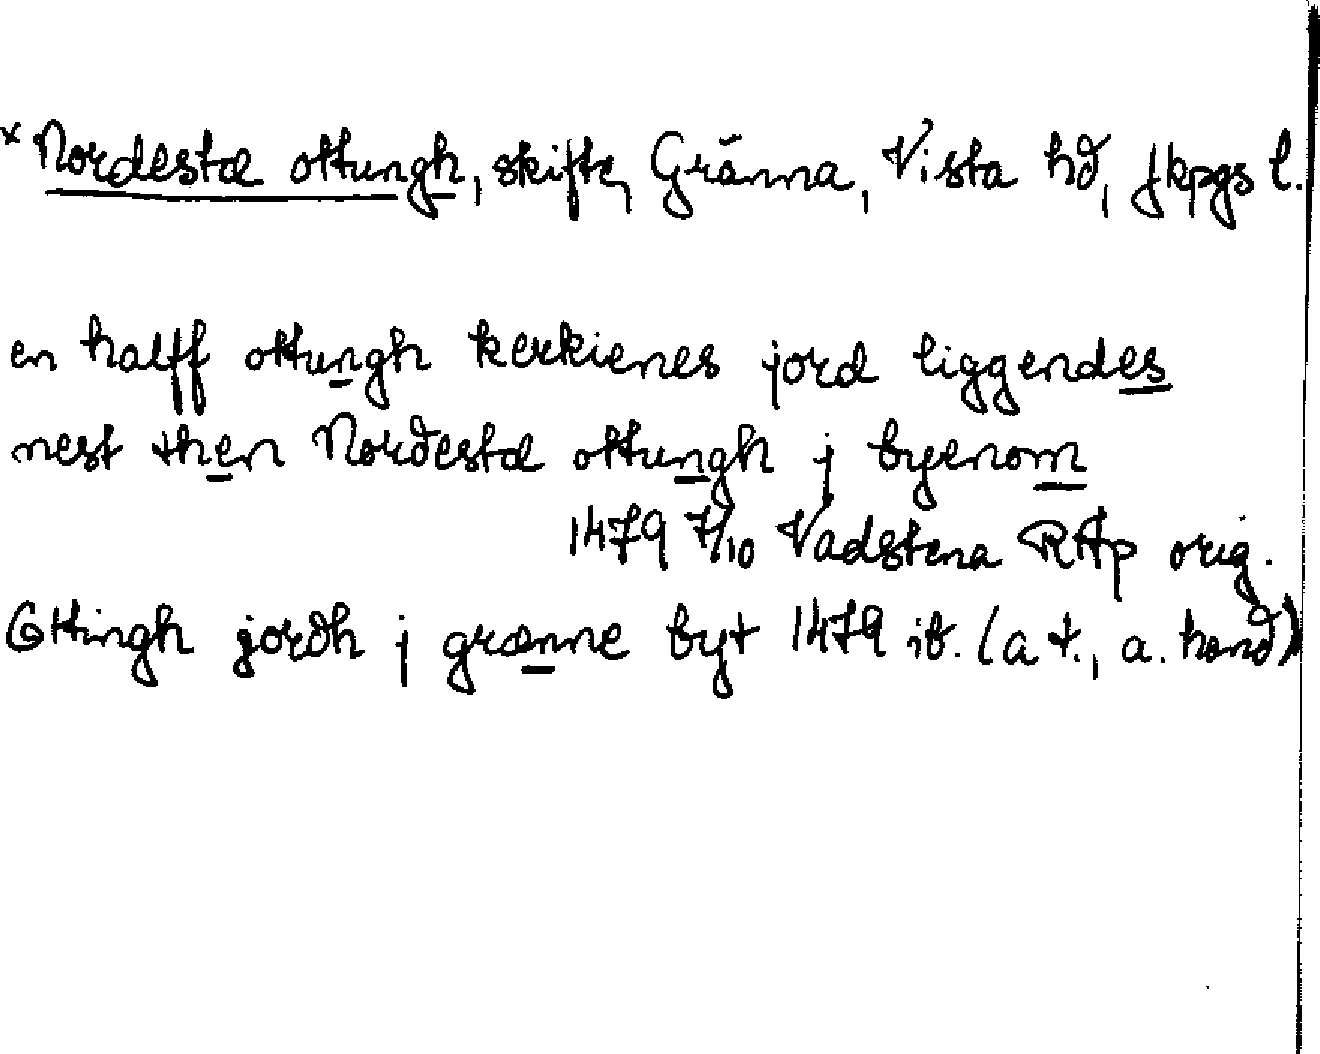 × Nordestæ ottungh, skifte, Gränna, Vista hd, Jkpgs l.
en halff ottungh kerkienes jord liggendes
nest then Nordestæ ottungh j byenom
1479 7/10 Vadstena RAp orig.
Ottingh jordh j grænne byt 1479 ib. (a t., a. hand)